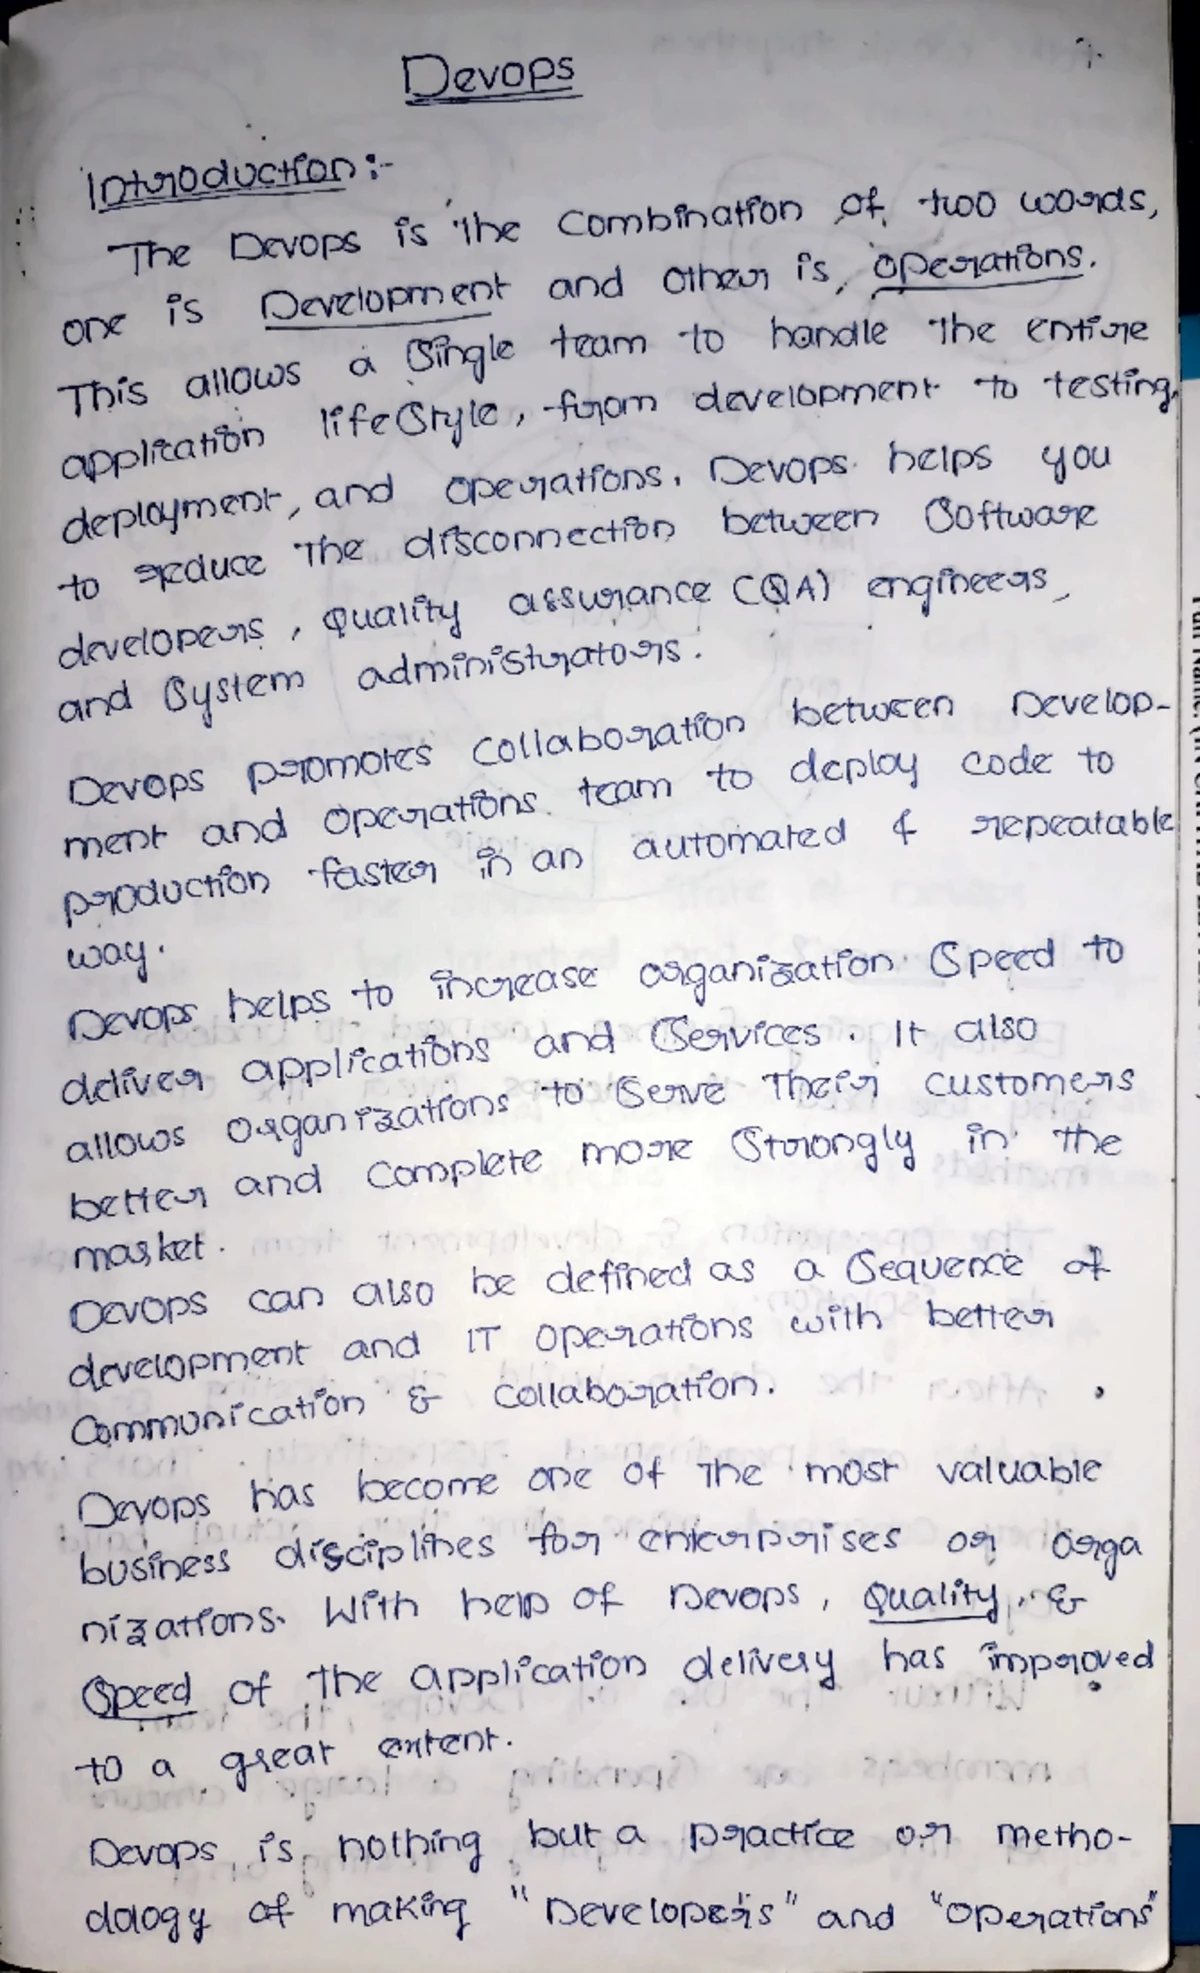 Devops
Introduction:-
The Devops is the combination of two words,
one is Development and other is, operations.
This allows a Single team to handle the entire
application lifeStyle, from development to testing,
deployment, and operations. Devops helps you
to reduce the disconnection between Software
developers, Quality assurance (QA) engineers,
and System administrators.
Devops promotes collaboration between Develop-
ment and operations team to deploy code to
production faster in an automated & repeatable
way.
Devops helps to increase organization Speed to
deliver applications and Services. It also
allows organizations to Serve their customers
better and complete more Strongly in the
market.
Devops can also be defined as a Sequence of
development and IT operations with better
Communication & collaboration.
Devops has become one of the most valuable
business disciplines for enterprises or orga
nizations. With help of Devops, Quality, &
Speed of the application delivery has improved
to a great extent.
Devops is nothing but a practice or metho-
dology of making "Developers" and "operations"